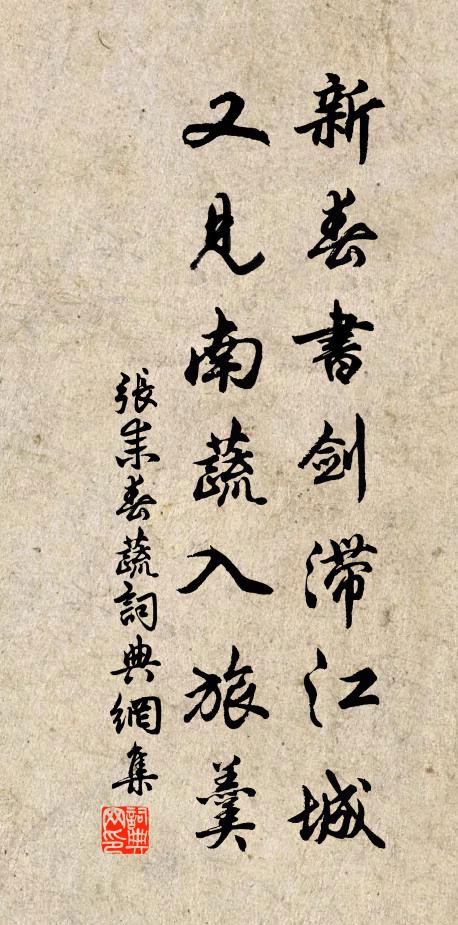 新春書劍滯江城
又見南蔬入旅羹
張耒春蔬詞典網集
詞典網印